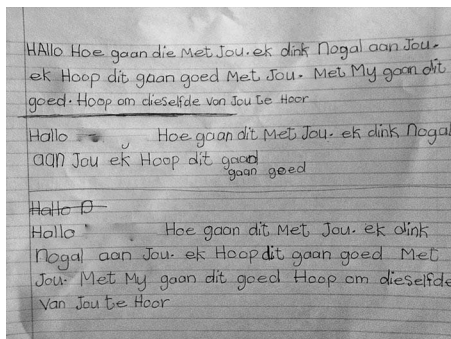 HAllo Hoe gaan die Met Jou. ek dink Nogal aan Jou.
ek Hoop dit gaan goed Met Jou. Met My gaan dit
goed. Hoop om dieselfde van Jou te Hoor
Hallo Hoe gaan dit Met Jou. ek dink Nogal
aan Jou ek Hoop dit gaan
gaan goed
Hallo D
Hallo Hoe gaan dit Met Jou. ek dink
Nogal aan Jou. ek Hoop dit gaan goed Met
Jou. Met My gaan dit goed Hoop om dieselfde
Van Jou te Hoor